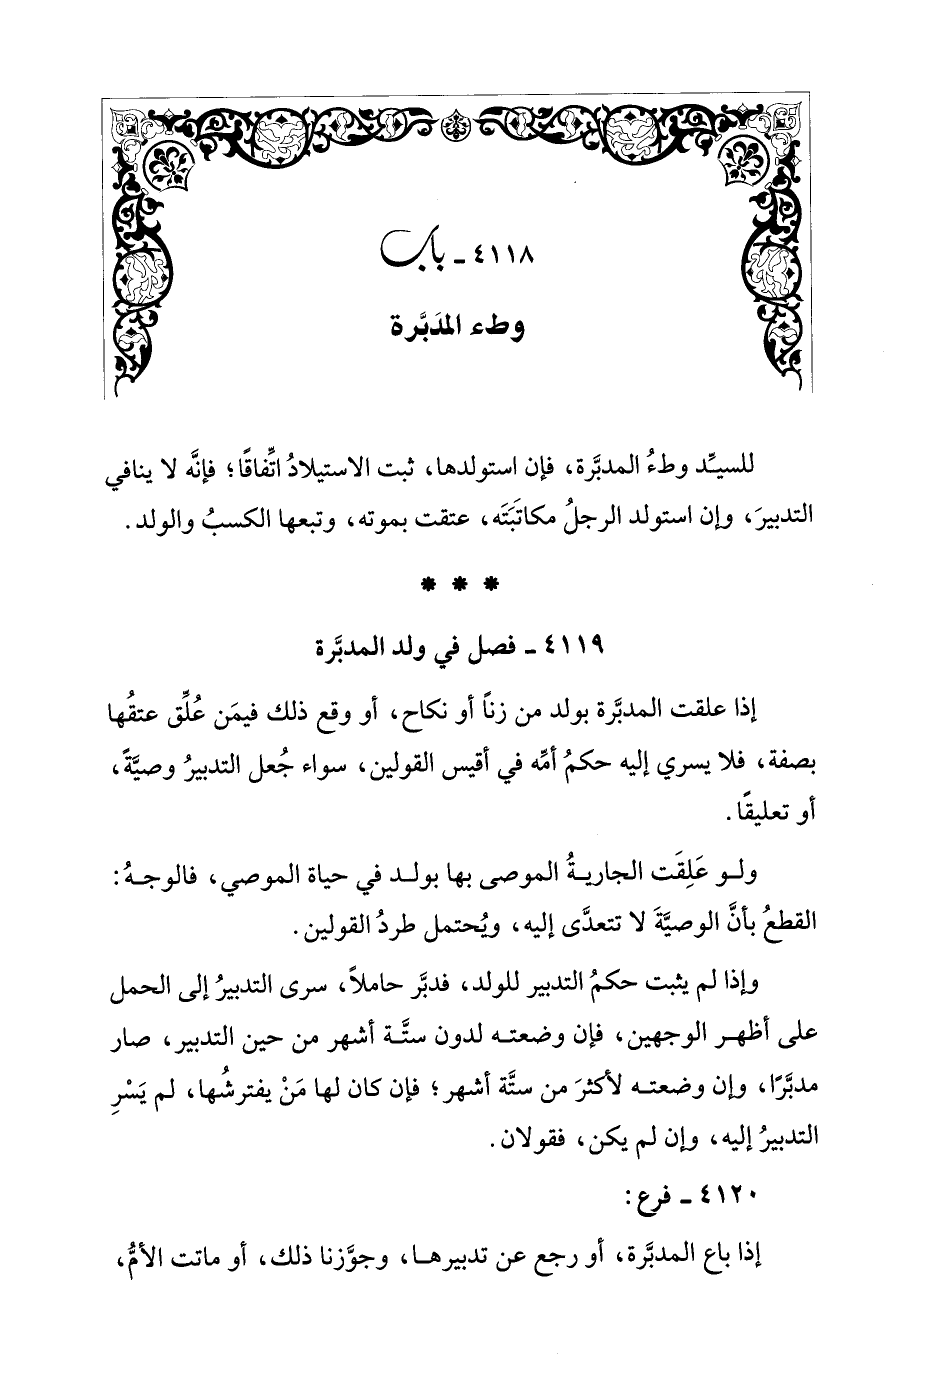 ٤١١٨ ـ باب
وطء المدَبَّرة
للسيِّد وطءُ المدبَّرة، فإن استولدها، ثبت الاستيلادُ اتِّفاقًا؛ فإنَّه لا ينافي
التدبيرَ، وإن استولد الرجلُ مكاتَبَتَه، عتقت بموته، وتبعها الكسبُ والولد.
* * *
٤١١٩ ـ فصل في ولد المدبَّرة
إذا علقت المدبَّرة بولد من زناً أو نكاح، أو وقع ذلك فيمَن عُلِّق عتقُها
بصفة، فلا يسري إليه حكمُ أمِّه في أقيس القولين، سواء جُعل التدبيرُ وصيَّةً،
أو تعليقًا.
ولو عَلِقَت الجاريةُ الموصى بها بولد في حياة الموصي، فالوجهُ:
القطعُ بأنَّ الوصيَّةَ لا تتعدَّى إليه، ويُحتمل طردُ القولين.
وإذا لم يثبت حكمُ التدبير للولد، فدبَّر حاملاً، سرى التدبيرُ إلى الحمل
على أظهر الوجهين، فإن وضعته لدون ستَّة أشهر من حين التدبير، صار
مدبَّرًا، وإن وضعته لأكثرَ من ستَّة أشهر؛ فإن كان لها مَنْ يفترشُها، لم يَسْرِ
التدبيرُ إليه، وإن لم يكن، فقولان.
٤١٢٠ ـ فرع:
إذا باع المدبَّرة، أو رجع عن تدبيرها، وجوَّزنا ذلك، أو ماتت الأمُّ،